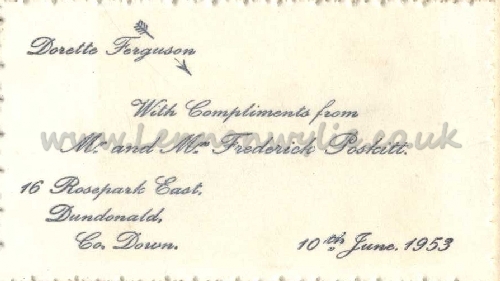 Dorette Ferguson
With Compliments from
www.Lennonwylie.co.uk
Mr. and Mrs. Frederick Poskitt.
16 Rosepark East,
Dundonald,
Co. Down.
10th June, 1953